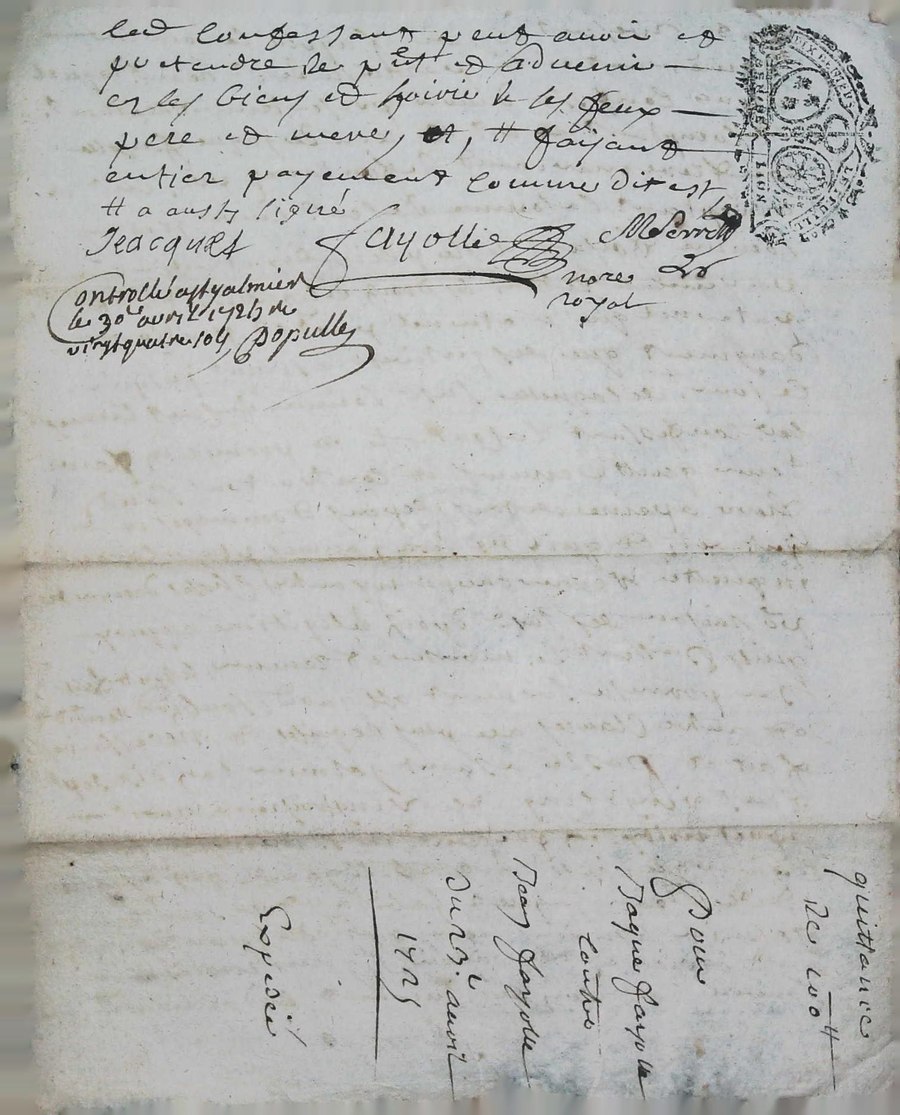 led confessant peut avoir et
pretendre de pnt et advenir
ez les biens et hoirie de ses feux
pere et mere, et, # faizant
entier payement comme dit est
# a aussy signé
Jeacques Fayolle
nore
royal
Controllé a St galmier
le 30e avril 1725 re
vingt quatre sols Populle
GENERALITE
LION
SIX DENIERS
quittance
de 100 #
Pour
Jaque fayolle
contre
Jean fayolle
du 23e avril
1725
Expedié